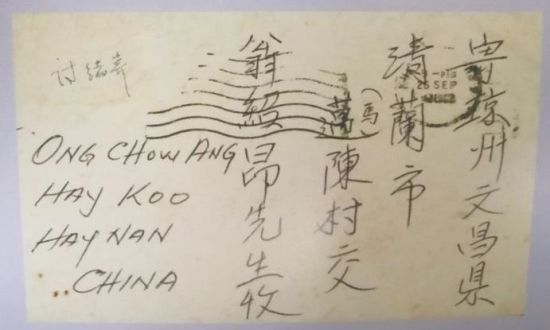 寄琼州文昌県
清蘭市
(馬)
邁陳村交
翁紹昂先生收
ONG CHOW ANG
HAY KOO
HAYNAN
CHINA
25 SEP